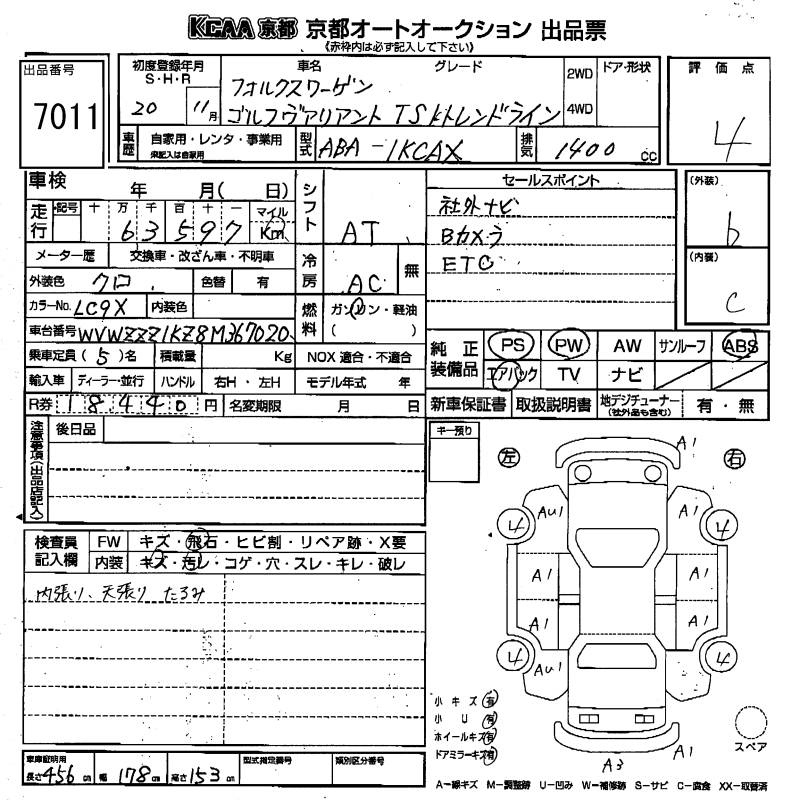 KCAA 京都 京都オートオークション 出品票
《赤枠内は必ず記入して下さい》
出品番号
7011
初度登録年月
S・H・R
20 11月
車名 グレード
フォルクスワーゲン
ゴルフヴァリアント TSIトレンドライン
2WD
4WD
ドア・形状
評価点
4
車歴
自家用・レンタ・事業用
未記入は自家用
型式
ABA-1KCAX
排気
1400 CC
車検 年 月( 日)
走行
*記号 十 万 千 百 十 一 マイル
6 3 5 9 7 Km
メーター歴 交換車・改ざん車・不明車
外装色 クロ 色替 有
カラーNo. LC9X 内装色
車台番号 WVWZZZ1KZ8M367020
乗車定員 (5)名 積載量 Kg
輸入車 ディーラー・並行 ハンドル 右H・左H
R券 18,440 円 名変期限 月 日
シフト AT
冷房 AC 無
燃料 ガソリン・軽油
( )
NOX 適合・不適合
モデル年式 年
セールスポイント
社外ナビ
Bカメラ
ETC
(外装)
b
(内装)
C
純正装備品
PS PW AW サンルーフ ABS
エアバック TV ナビ
新車保証書 取扱説明書 地デジチューナー
(社外品も含む)
有・無
注意事項(出品店記入)
後日品
キー預り
左 右
A1
AU1 A1
4 4
A1 A1
A1 A1
4 4
AU1
A3 A1
検査員記入欄
FW キズ・飛石・ヒビ割・リペア跡・X要
内装 キズ・汚レ・コゲ・穴・スレ・キレ・破レ
内張り、天張り たるみ
小キズ 有
小U 有
ホイールキズ 有
ドアミラーキズ 有
スペア
車庫証明用
長さ 456 cm 幅 178 cm 高さ 153 cm
型式指定番号
類別区分番号
A―線キズ M―調整跡 U―凹み W―補修跡 S―サビ C―腐食 XX―取替済